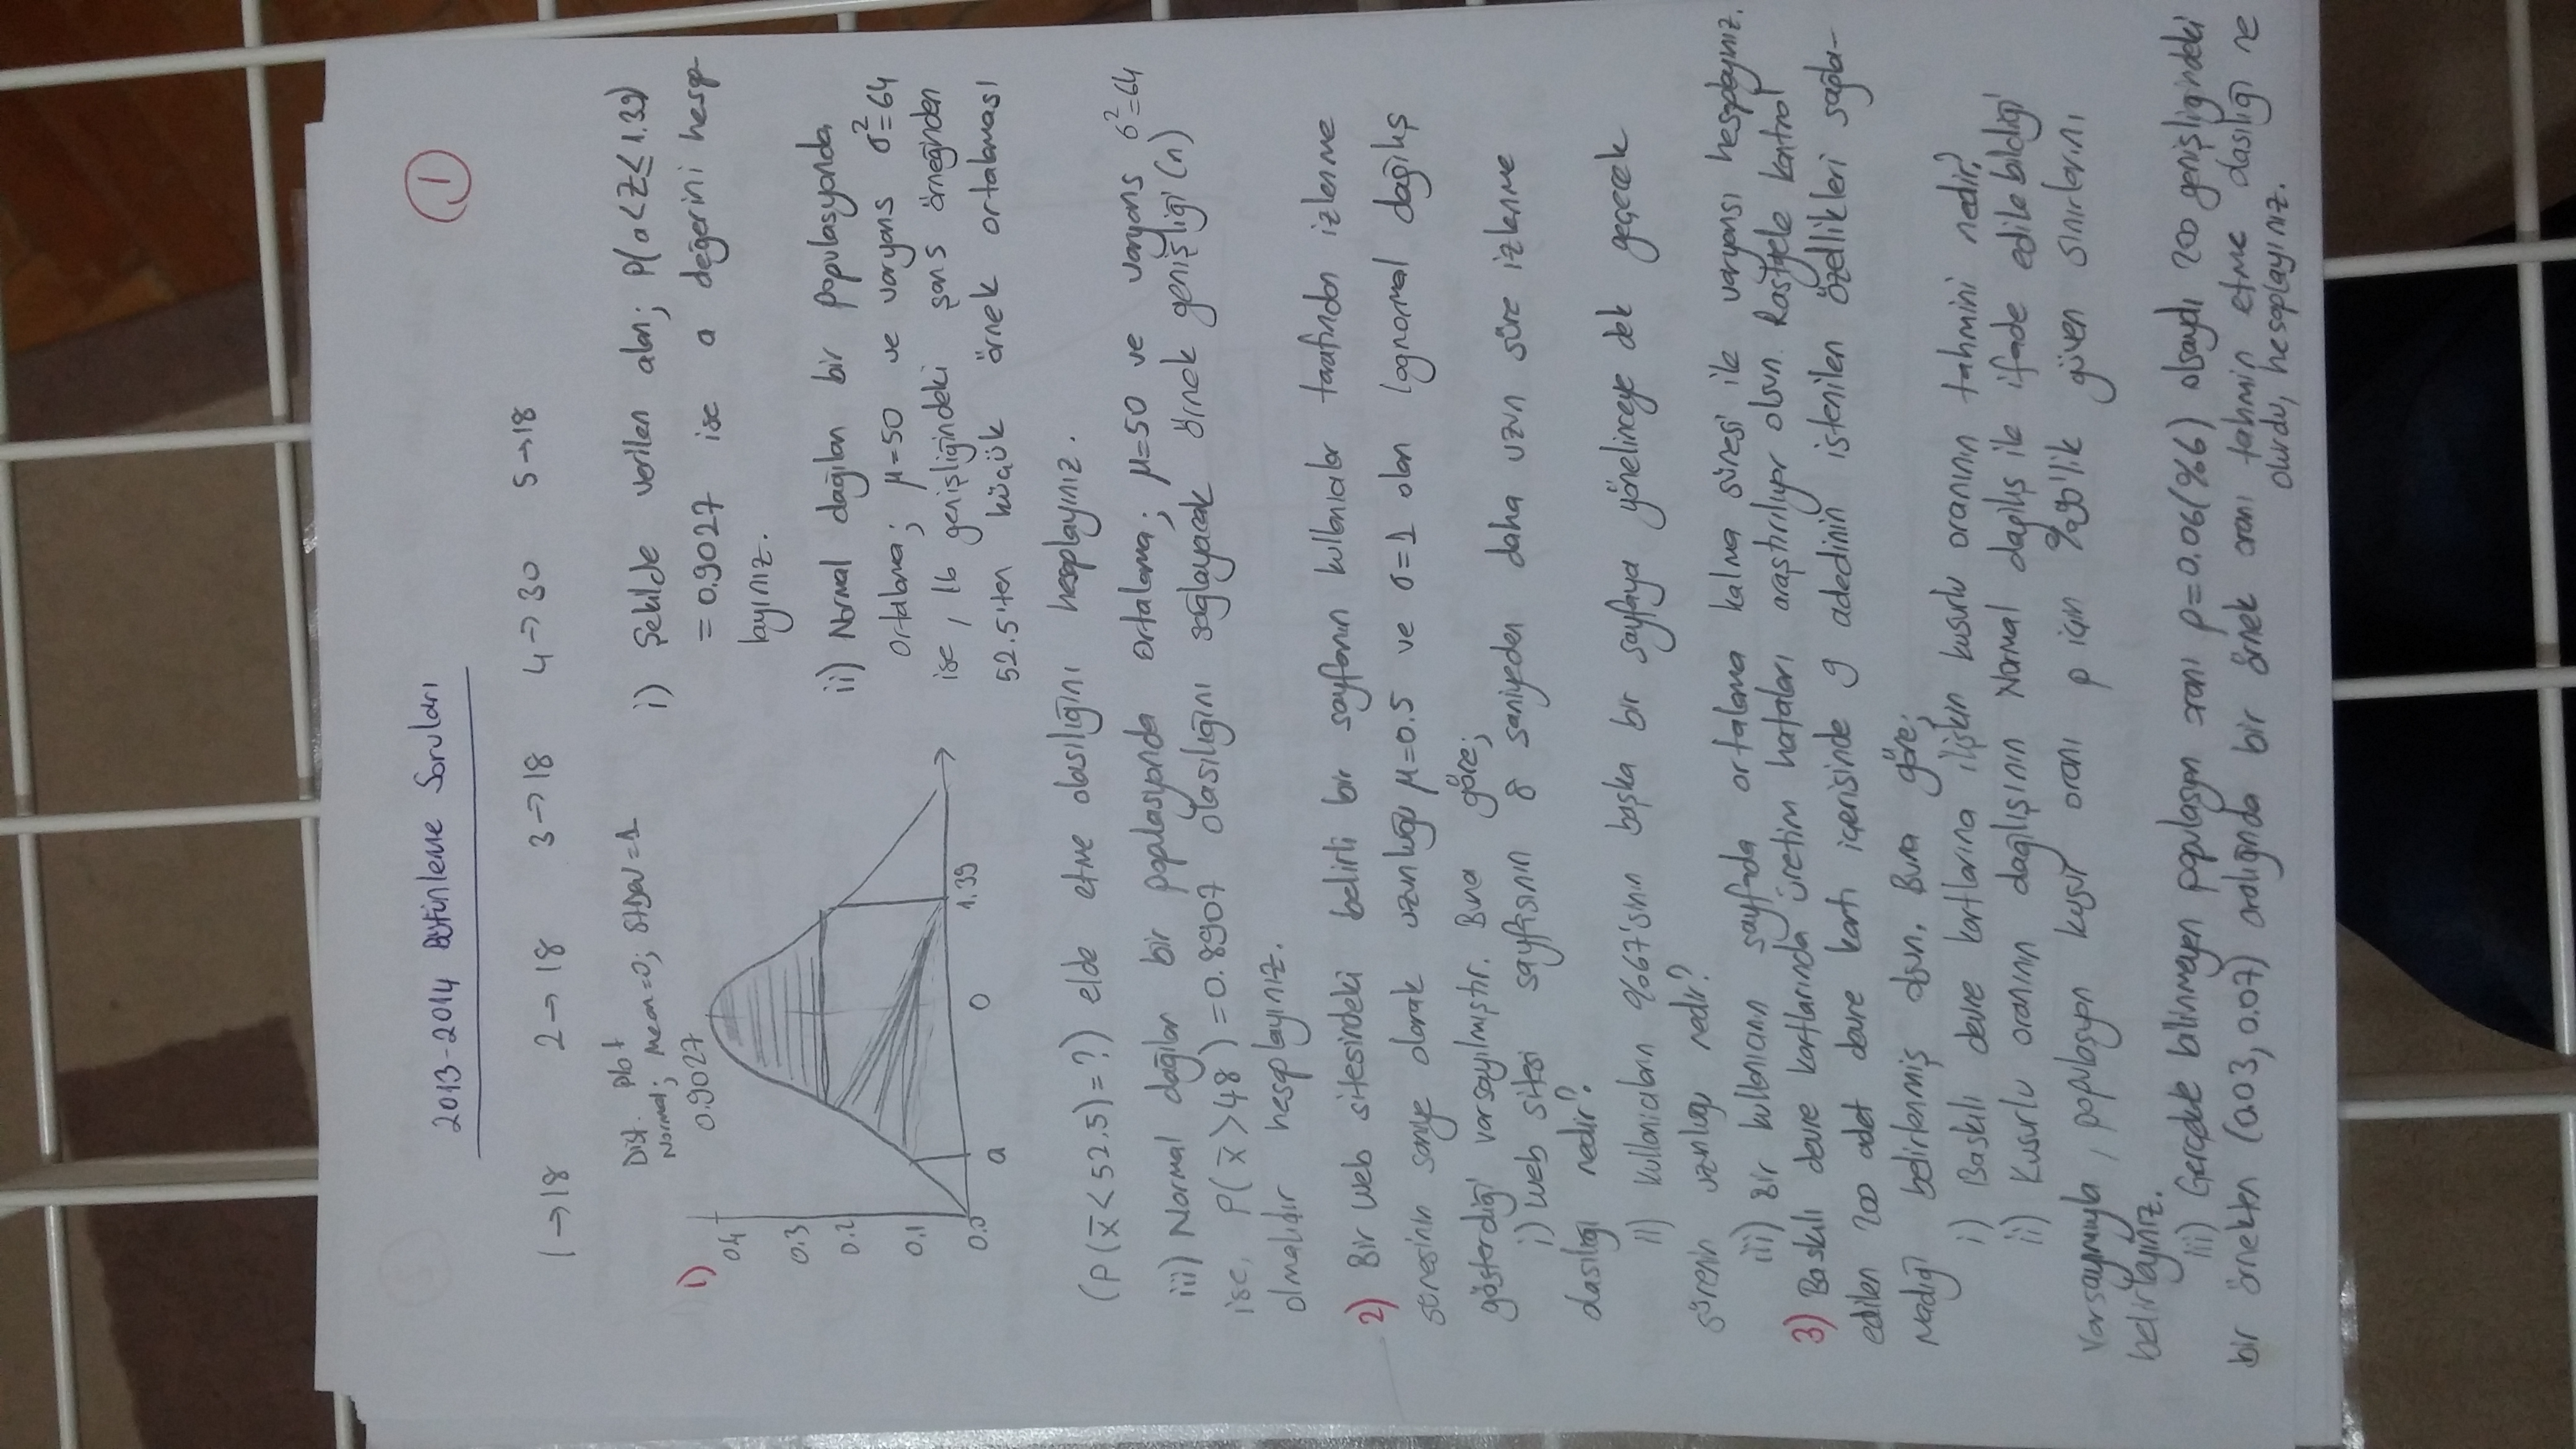 2013-2014 Bütünleme Soruları
1
1→18 2→18 3→18 4→30 5→18
Dist. Plot
Normal; Mean=0; StDev=1
0.9027
1)
0.4
0.3
0.2
0.1
0.0
a 0 1.39
i) Şekilde verilen alan; P(a<Z≤1.39)
=0.9027 ise a değerini hesap-
layınız.
ii) Normal dağılan bir populasyonda
ortalama; μ=50 ve varyans σ²=64
ise, 16 genişliğindeki şans örneğinden
52.5'ten küçük örnek ortalaması
(P(x̄<52.5)=?) elde etme olasılığını hesaplayınız.
iii) Normal dağılan bir populasyonda ortalama; μ=50 ve varyans σ²=64
ise, P(x̄>48)=0.8907 olasılığını sağlayacak örnek genişliği (n)
olmalıdır hesaplayınız.
2) Bir web sitesindeki belirli bir sayfanın kullanıcılar tarafından izlenme
süresinin saniye olarak uzunluğu μ=0.5 ve σ=1 olan lognormal dağılış
gösterdiği varsayılmıştır. Buna göre;
i) Web sitesi sayfasının 8 saniyeden daha uzun süre izlenme
olasılığı nedir?
ii) Kullanıcıların %67'sinin başka bir sayfaya yönelinceye dek geçecek
sürenin uzunlugu nedir?
iii) Bir kullanıcının sayfada ortalama kalma süresi ile varyansı hesaplayınız.
3) Baskılı devre kartlarında üretim hataları araştırılıyor olsun. Rastgele kontrol
edilen 200 adet devre kartı içerisinde 9 adedinin istenilen özellikleri sağla-
madığı belirlenmiş olsun. Buna göre;
i) Baskılı devre kartlarına ilişkin kusurlu oranının tahmini nedir?
ii) Kusurlu oranının dağılışının Normal dağılış ile ifade edilebildiği
varsayımıyla, populasyon kusur oranı p için %90'lik güven sınırlarını
belirleyiniz.
iii) Gerçekte bilinmeyen populasyon oranı p=0.06(%6) olsaydı 200 genişligindeki
bir örnekten (0.03, 0.07) aralığında bir örnek oranı tahmin etme olasılığı ne
olurdu, hesaplayınız.